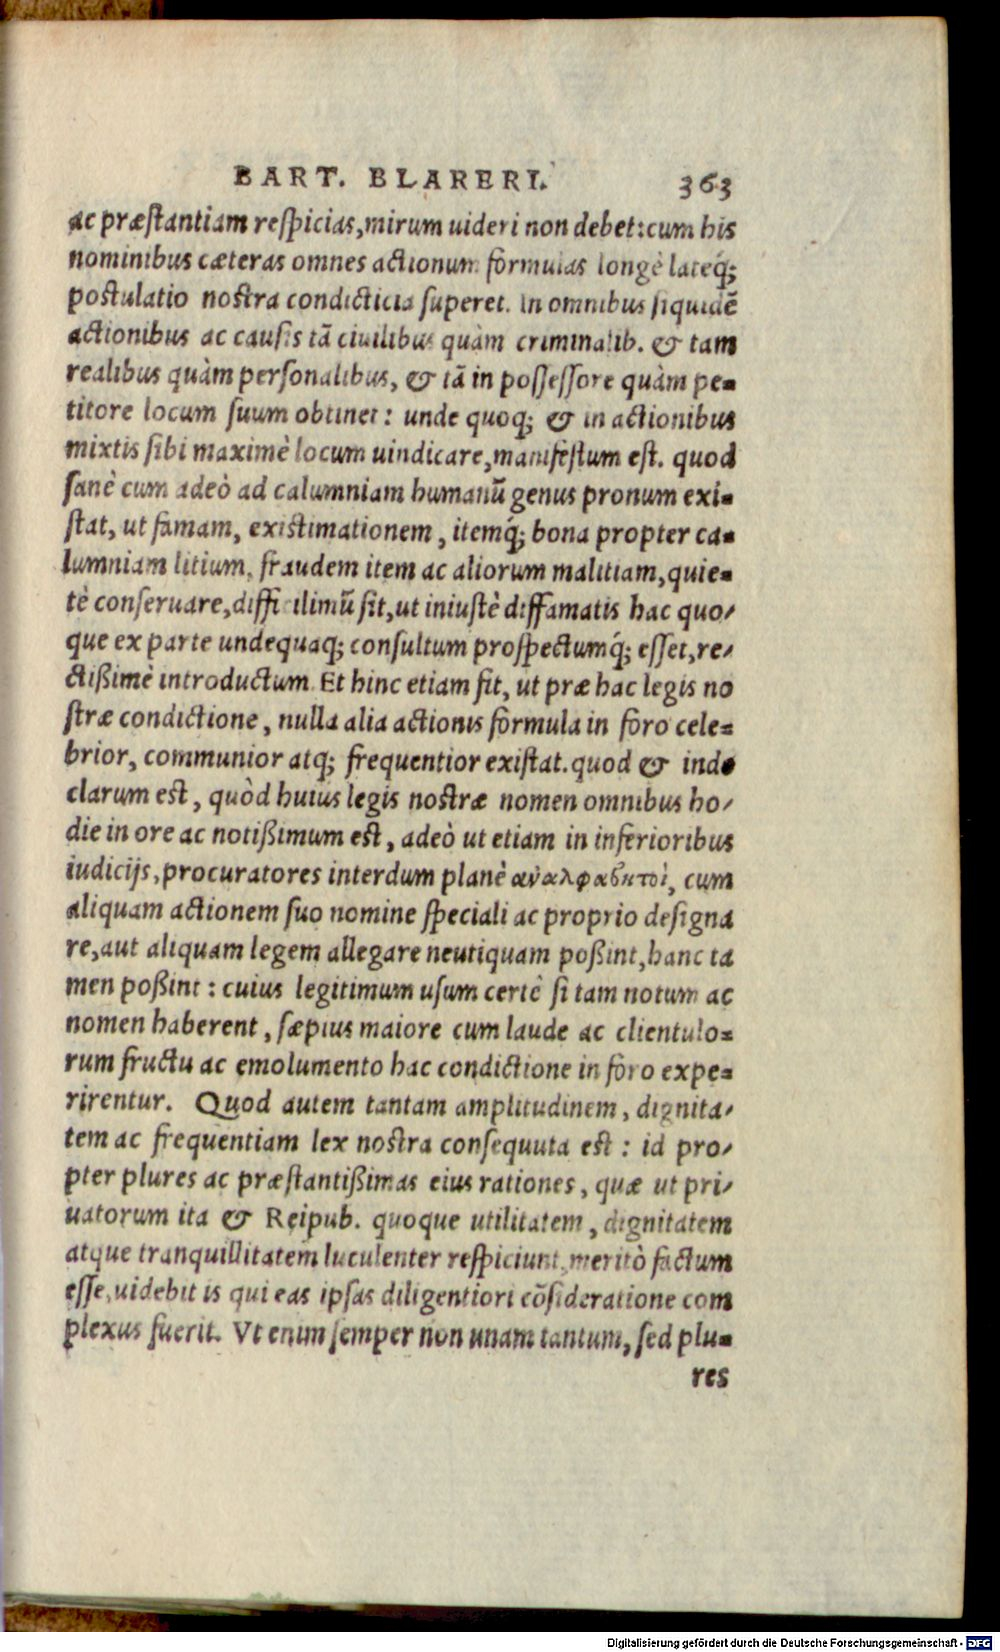 BART. BLARERI. 363
ac præstantiam respicias, mirum uideri non debet: cum his
nominibus cæteras omnes actionum formulas longè lateq́;
postulatio nostra condicticia superet. In omnibus siquidē
actionibus ac causis tā ciuilibus quàm criminalib. & tam
realibus quàm personalibus, & tā in possessore quàm pe-
titore locum suum obtinet: unde quoq; & in actionibus
mixtis sibi maximè locum uindicare, manifestum est. quod
sanè cum adeò ad calumniam humanū genus pronum exi-
stat, ut famam, existimationem, itemq́; bona propter ca-
lumniam litium, fraudem item ac aliorum malitiam, quie-
tè conseruare, difficilimū sit, ut iniustè diffamatis hac quo-
que ex parte undequaq; consultum prospectumq́; esset, re-
ctißimè introductum. Et hinc etiam fit, ut præ hac legis no
stræ condictione, nulla alia actionis formula in foro cele-
brior, communior atq; frequentior existat. quod & inde
clarum est, quòd huius legis nostræ nomen omnibus ho-
die in ore ac notißimum est, adeò ut etiam in inferioribus
iudicijs, procuratores interdum planè ἀναλφαβητοὶ, cum
aliquam actionem suo nomine speciali ac proprio designa
re, aut aliquam legem allegare neutiquam poßint, hanc ta
men poßint: cuius legitimum usum certè si tam notum ac
nomen haberent, sæpius maiore cum laude ac clientulo-
rum fructu ac emolumento hac condictione in foro expe-
rirentur. Quod autem tantam amplitudinem, dignita-
tem ac frequentiam lex nostra consequuta est: id pro-
pter plures ac præstantißimas eius rationes, quæ ut pri-
uatorum ita & Reipub. quoque utilitatem, dignitatem
atque tranquillitatem luculenter respiciunt, meritò factum
esse, uidebit is qui eas ipsas diligentiori cōsideratione com
plexus fuerit. Vt enim semper non unam tantum, sed plu-
res
Digitalisierung gefördert durch die Deutsche Forschungsgemeinschaft - DFG